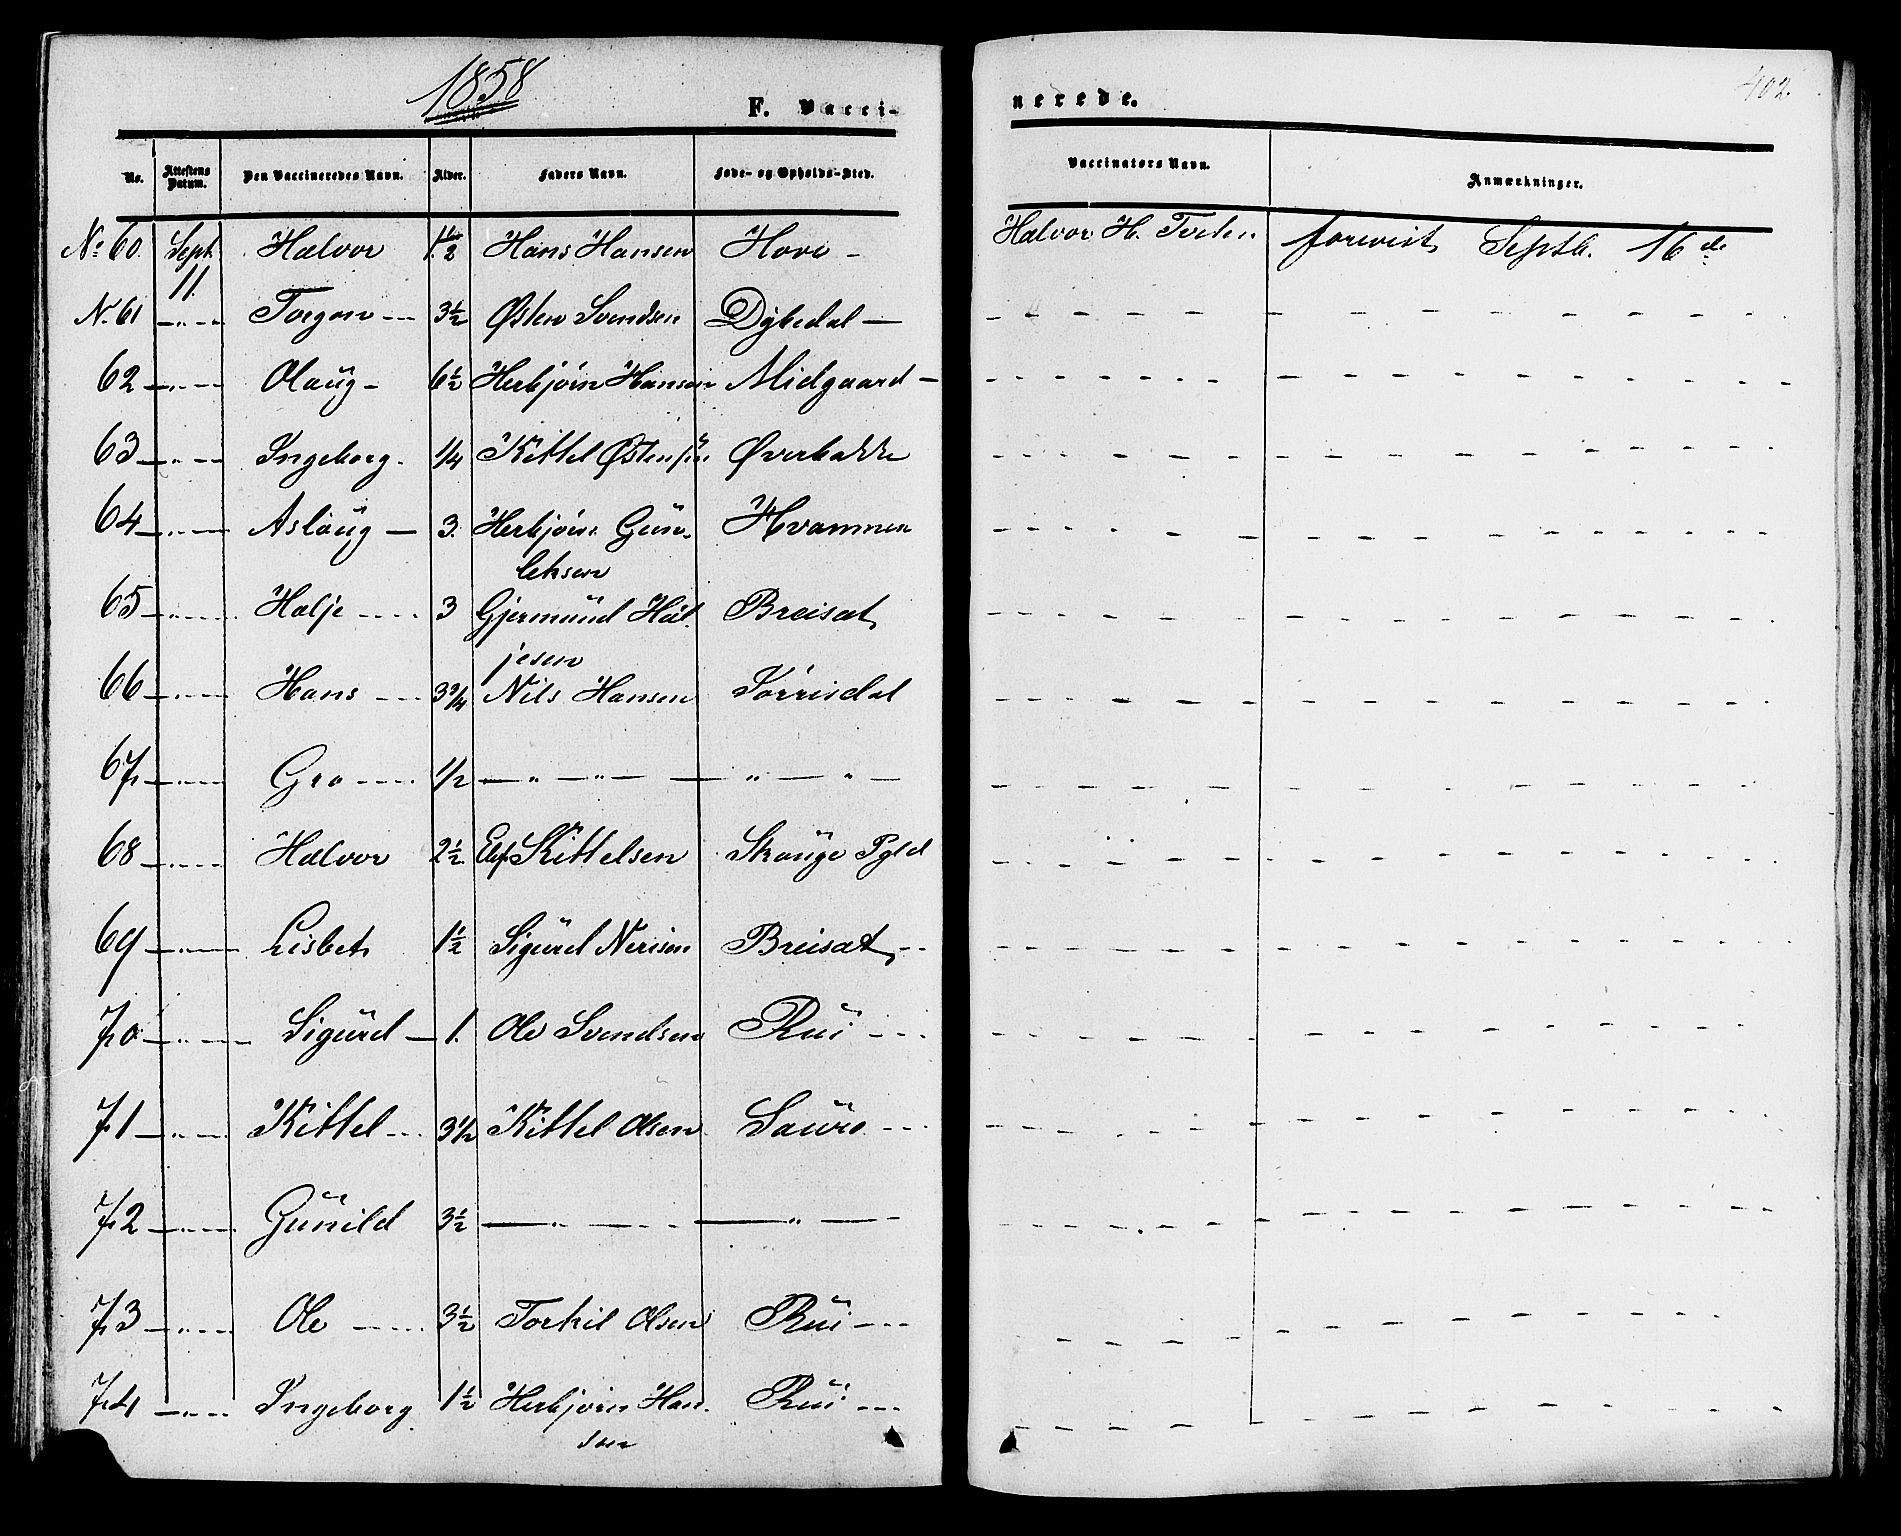 1858
F. Vacci-
nerede.
402.
No. Attestens Datum. Den Vaccineredes Navn. Alder. Faders Navn. Føde- og Opholds-Sted. Vaccinators Navn. Anmærkninger.
No 60. Sept. 11. Halvor 1½ Hans Hansen Hove - Halvor H. forevist Septb. 16de
N. 61 —„— Torgon — 3½ Østen Svendsen Dybedal —
62 —„— Olaug - 6½ Herbjørn Hansen Midgaard —
63 —„— Ingeborg. 1/4 Kittel Østensen Øverbakke
64 —„— Aslaug — 3. Herbjørn Gun-
leksen Hvammen
65 —„— Halje --- 3 Gjermund Hal-
jesen Breisat
66 —„— Hans --- 3¾ Nils Hansen Tørrisdal
67 —„— Gro --- 1/2 —„—„— —„—„—
68 —„— Halvor 2½ Kittelsen Skauge Pgld
69 —„— Lisbet 1½ Sigurd Nerisen Breisat --
70 —„— Sigurd — 1. Ole Svendsen Rui ---
71 —„— Kittel -- 3½ Kittel Olsen Saure ---
72 —„— Gunild 3½ —„— —„—
73 —„— Ole --- 3½ Torkil Olsen Rui ---
74 —„— Ingeborg 1½ Herbjørn Han-
sen Rui ---